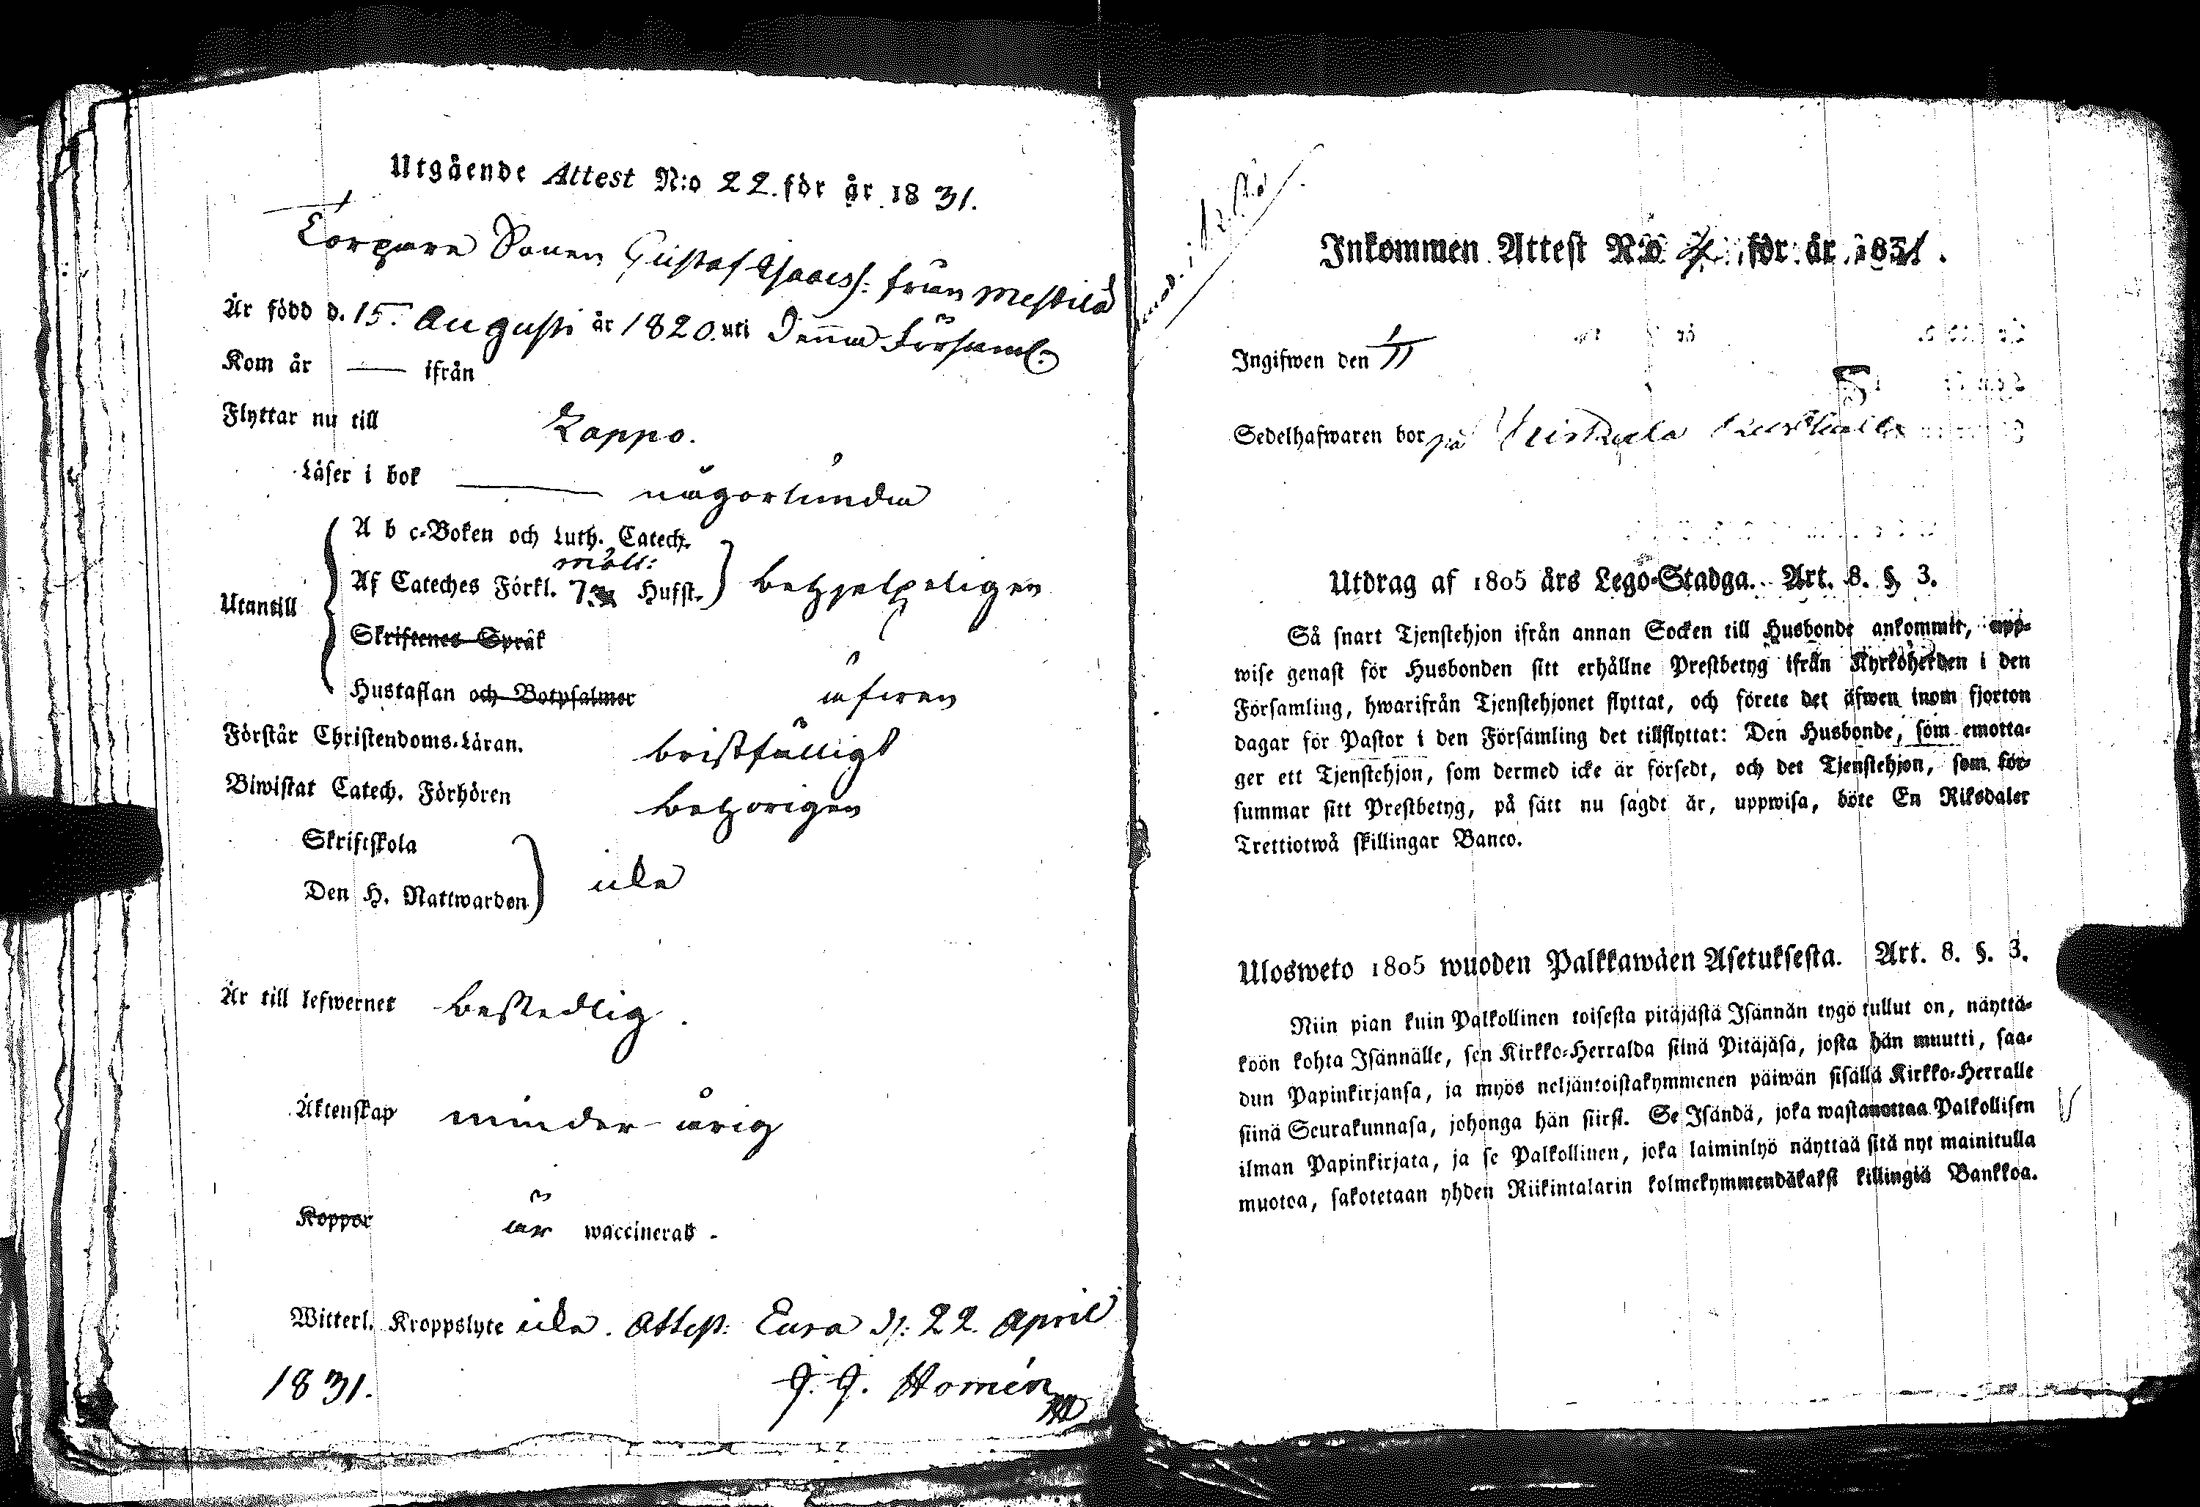 Utgående Attest N:o 22. för år 1831.
Torpare Sonen Gustaf Isaacss: från Mestilä
Är född d. 15. Augusti år 1820. uti Denna Församl:
Kom år — ifrån
Flyttar nu till Lappo.
Läser i bok — någorlunda
A b c-Boken och Luth. Catech.
mått:
Utantill Af Cateches Förkl. 7 Hufst. behjelpeligen
Skriftenes Språk
Hustaflan och Botpsalmer äfwen
Förstår Christendoms-Läran. bristfälligt
Biwistat Catech. Förhören behörigen
Skriftskola
Den H. Nattwarden icke
Är till lefwernet beskedlig.
Äktenskap minder-årig
Koppor är waccinerad.
Witterl. Kroppslyte icke. Attest: Eura d: 22. April
1831. J. J. Homén
Inkommen Attest N:o för år 1831.
Ingifwen den 1/11
Sedelhafwaren bor på
Utdrag af 1805 års Lego-Stadga. Art. 8. §. 3.
Så snart Tjenstehjon ifrån annan Socken till Husbonde ankommit, upp-
wise genast för Husbonden sitt erhållne Prestbetyg ifrån Kyrkoherden i den
Församling, hwarifrån Tjenstehjonet flyttat, och förete det äfwen inom fjorton
dagar för Pastor i den Församling det tillflyttat: Den Husbonde, som emotta-
ger ett Tjenstehjon, som dermed icke är försedt, och det Tjenstehjon, som för-
summar sitt Prestbetyg, på sätt nu sagdt är, uppwisa, böte En Riksdaler
Trettiotwå skillingar Banco.
Ulosweto 1805 wuoden Palkkawäen Asetuksesta. Art. 8. §. 3.
Niin pian kuin Palkollinen toisesta pitäjästä Isännän tygö tullut on, näyttä-
köön kohta Isännälle, sen Kirkko-Herralda siinä Pitäjäsä, josta hän muutti, saa-
dun Papinkirjansa, ja myös neljäntoistakymmenen päiwän sisällä Kirkko-Herralle
siinä Seurakunnasa, johonga hän siirsi. Se Isändä, joka wastanottaa Palkollisen
ilman Papinkirjata, ja se Palkollinen, joka laiminlyö näyttää sitä nyt mainitulla
muotoa, sakotetaan yhden Riikintalarin kolmekymmendäkaksi killingiä Bankkoa.